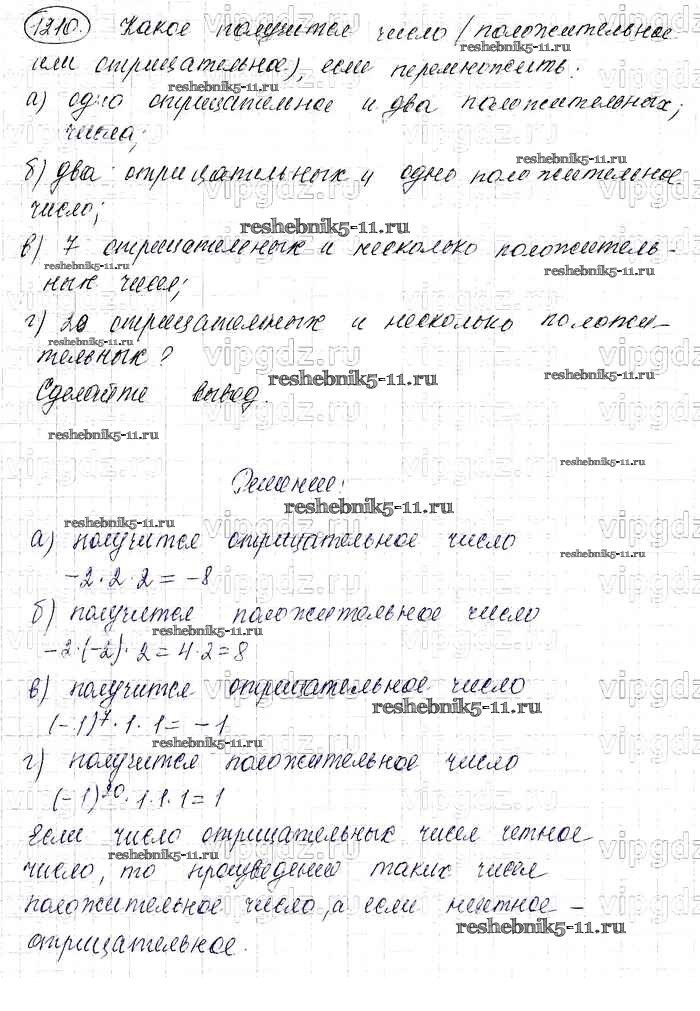 1210. Какое получится число (положительное
или отрицательное), если перемножить:
а) одно отрицательное и два положительных;
числа;
б) два отрицательных и одно положительное
число;
в) 7 отрицательных и несколько положитель-
ных чисел;
г) 20 отрицательных и несколько положи-
тельных?
Сделайте вывод.
Решение:
а) получится отрицательное число
-2·2·2=-8
б) получится положительное число
-2·(-2)·2=4·2=8
в) получится отрицательное число
(-1)⁷·1·1=-1
г) получится положительное число
(-1)²⁰·1·1·1=1
Если число отрицательных чисел четное
число, то произведение таких чисел
положительное число, а если нечетное -
отрицательное.
reshebnik5-11.ru
vipgdz.ru